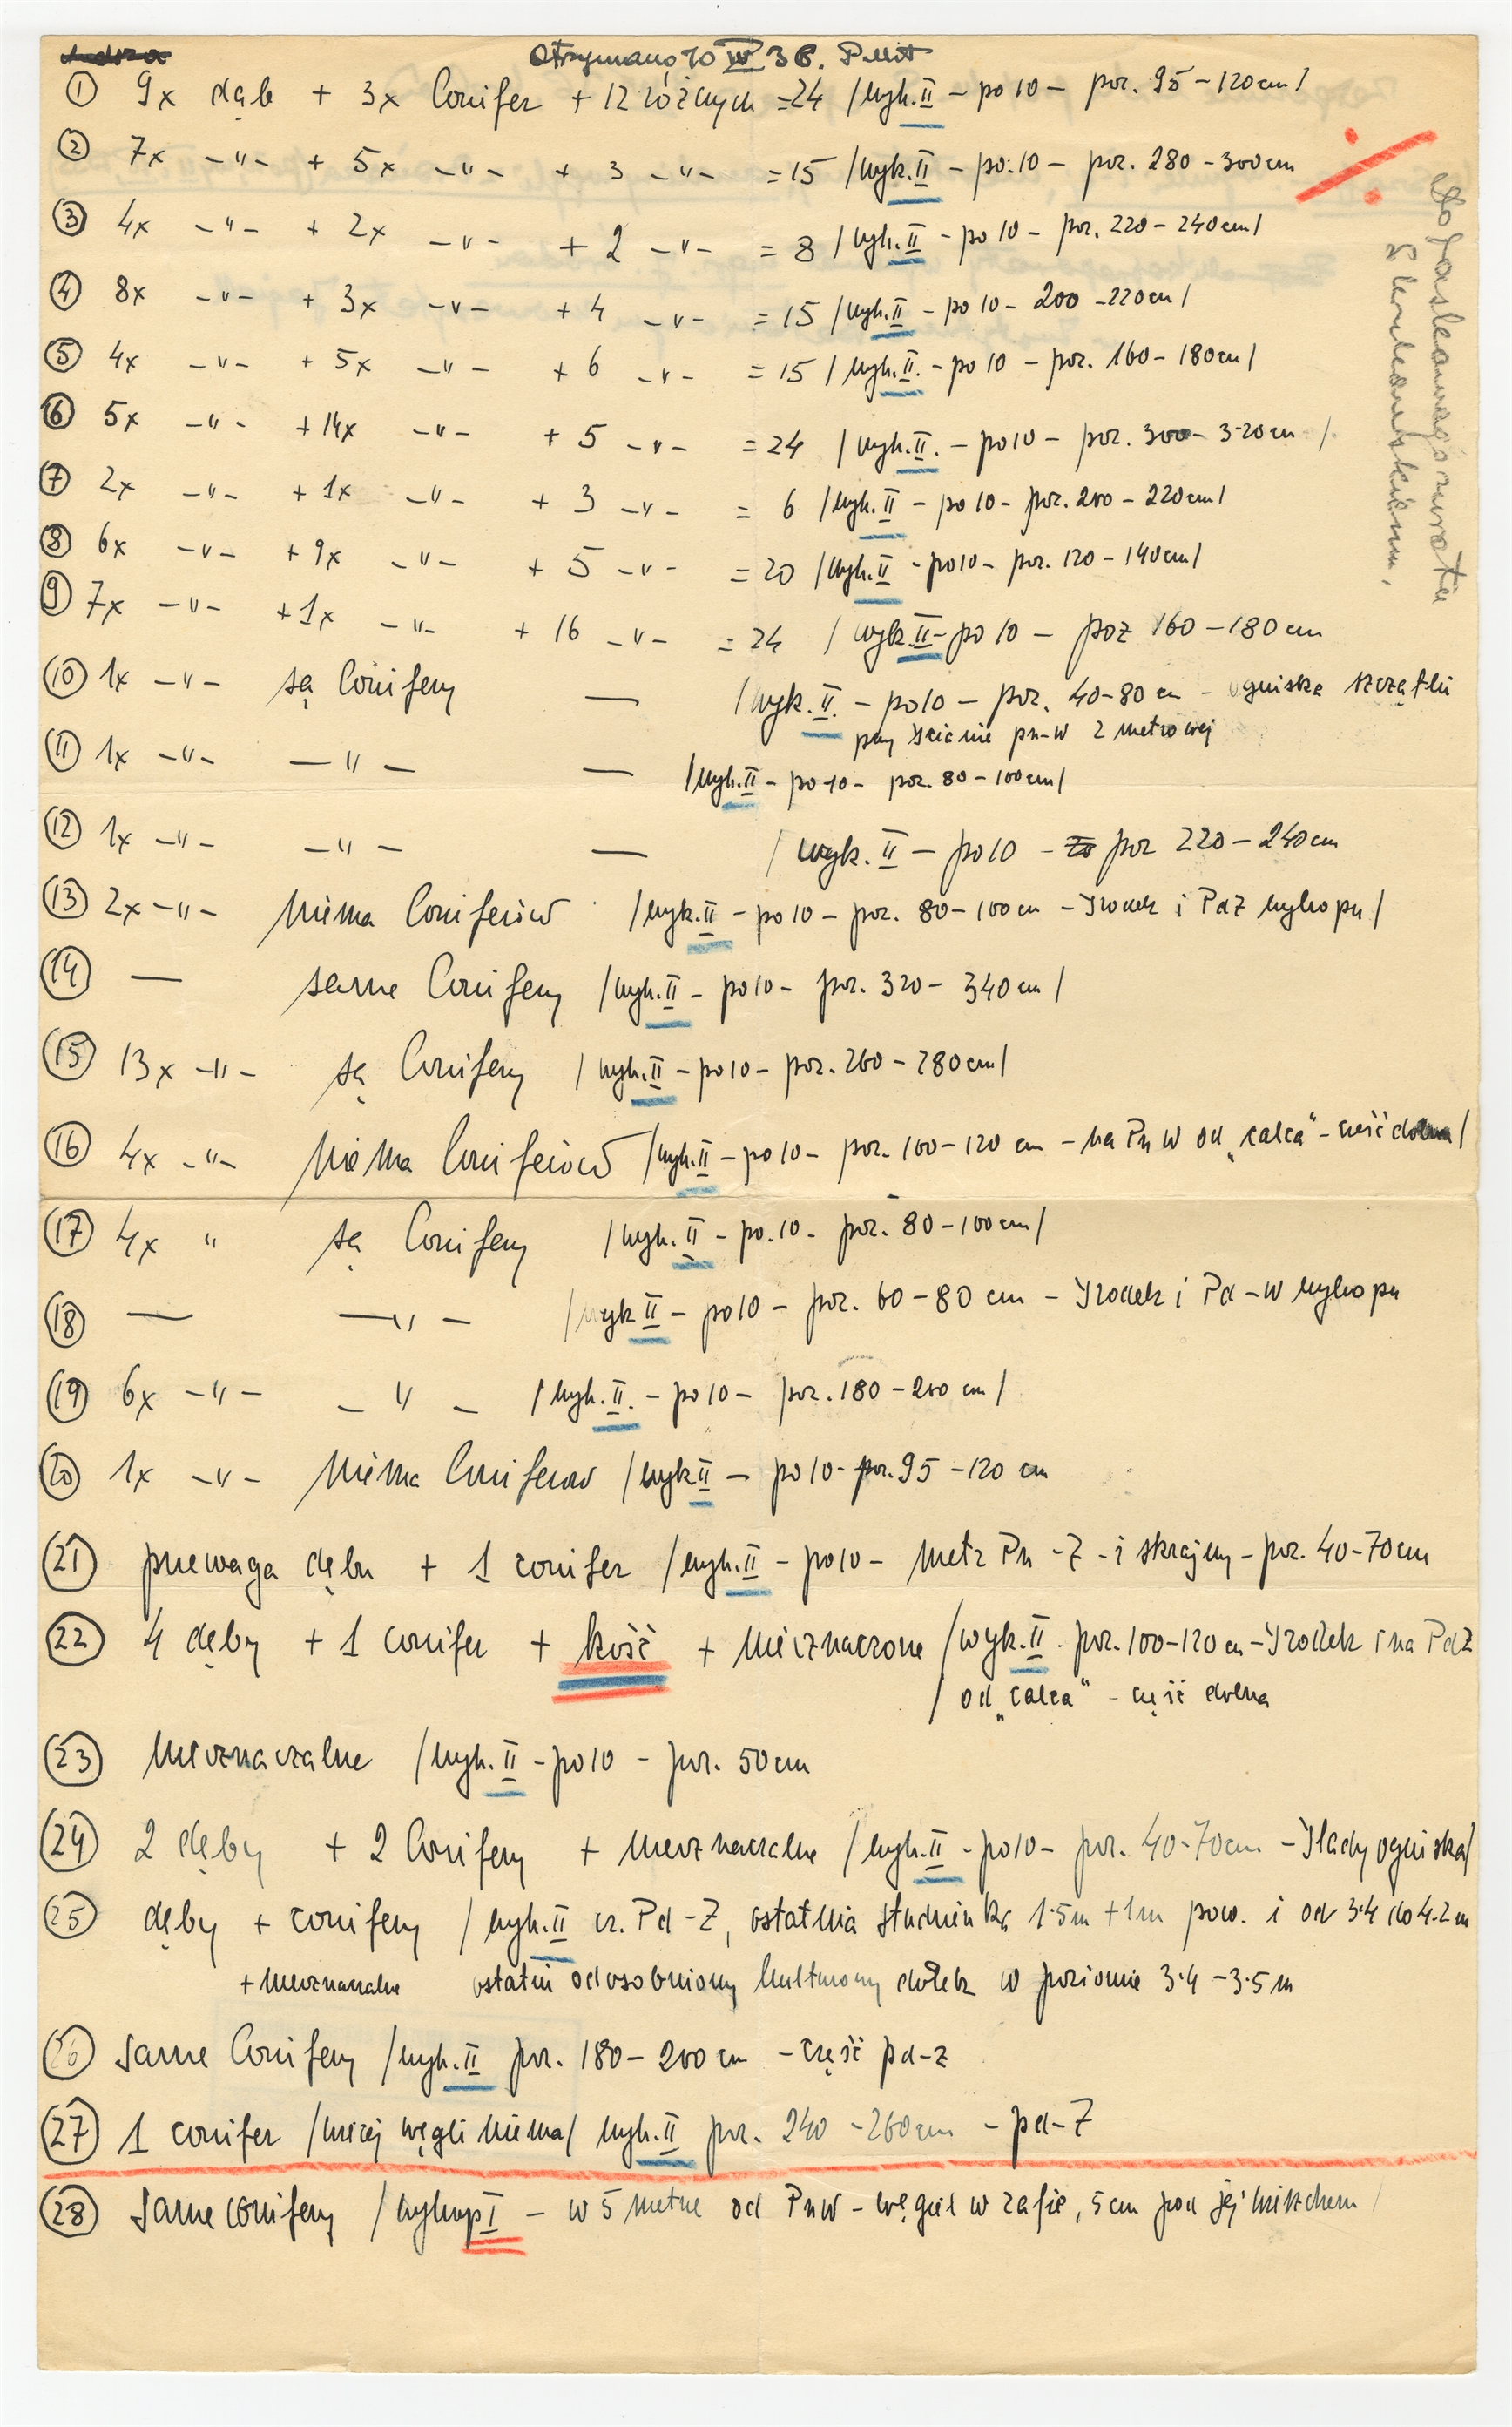 Otrzymano 10 IV 36.
① 9x dąb + 3x Conifer + 12 różnych = 24 /wyk. II – po 10 – poz. 95 – 120 cm/
② 7x –"– + 5x –"– + 3 –"– = 15 /wyk. II – po 10 – poz. 280 – 300 cm
③ 4x –"– + 2x –"– + 2 –"– = 8 /wyk. II – po 10 – poz. 220 – 240 cm/
④ 8x –"– + 3x –"– + 4 –"– = 15 /wyk. II – po 10 – 200 – 220 cm/
⑤ 4x –"– + 5x –"– + 6 –"– = 15 /wyk. II. – po 10 – poz. 160 – 180 cm/
⑥ 5x –"– + 14x –"– + 5 –"– = 24 /wyk. II. – po 10 – poz. 300 – 320 cm /
⑦ 2x –"– + 1x –"– + 3 –"– = 6 /wyk. II – po 10 – poz. 200 – 220 cm/
⑧ 6x –"– + 9x –"– + 5 –"– = 20 /wyk. II – po 10 – poz. 120 – 140 cm/
⑨ 7x –"– + 1x –"– + 16 –"– = 24 / wyk. II – po 10 – poz 160 – 180 cm
⑩ 1x –"– są Conifery — /wyk. II. – po 10 – poz. 40-80 cm – ogniska szczątki
przy ścianie pn-w 2 metrowej
⑪ 1x –"– –"– — /wyk. II – po 10 – poz. 80 – 100 cm/
⑫ 1x –"– –"– — / wyk. II – po 10 – poz 220 – 240 cm
⑬ 2x –"– niema Coniferów /wyk. II – po 10 – poz. 80 – 100 cm – środek i PdZ wykopu/
⑭ — same Conifery /wyk. II – po 10 – poz. 320 – 340 cm/
⑮ 13x –"– są Conifery /wyk. II – po 10 – poz. 260 – 280 cm/
⑯ 4x –"– niema Coniferów /wyk. II – po 10 – poz. 100 – 120 cm – na Pn W od „calca" – część dolna/
⑰ 4x " są Conifery /wyk. II – po. 10 – poz. 80 – 100 cm/
⑱ — –"– /wyk II – po 10 – poz. 60 – 80 cm – środek i Pd – W wykopu
⑲ 6x –"– –"– /wyk. II. – po 10 – poz. 180 – 200 cm/
⑳ 1x –"– niema Coniferów /wyk II – po 10 – poz. 95 – 120 cm
(21) przewaga dębu + 1 conifer /wyk. II – po 10 – metr Pn – Z – i skrajny – poz. 40-70 cm
(22) 4 dęby + 1 conifer + kość + nieoznaczone /wyk. II. poz. 100-120 cm – środek i na PdZ
/ od „calca" – część dolna
(23) nieoznaczalne /wyk. II – po 10 – poz. 50 cm
(24) 2 dęby + 2 Conifery + nieoznaczalne /wyk. II – po 10 – poz. 40-70 cm – ślady ogniska/
(25) dęby + conifery /wyk. II cz. Pd – Z, ostatnia studzienka 1.5 m + 1 m pow. i od 3.4 do 4.2 m
+ nieoznaczalne ostatni odosobniony kulturowy dołek w poziomie 3.4 – 3.5 m
(26) same Conifery /wyk. II poz. 180 – 200 cm – część pd-z
(27) 1 conifer /więcej węgli niema/ wyk. II poz. 240 – 260 cm – pd-Z
(28) same conifery /wykop I – w 5 metrze od PnW – węgiel w rafie, 5 cm pod jej wierzchem /